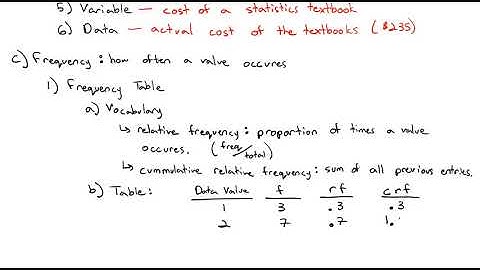 5) Variable — cost of a statistics textbook
6) Data — actual cost of the textbooks ($235)
c) Frequency: how often a value occures
1) Frequency Table
a) Vocabulary
↳ relative frequency: proportion of times a value
occures. (freq/total)
↳ cummulative relative frequency: sum of all previous entries.
b) Table: Data Value f rf crf
1 3 .3 .3
2 7 .7 1.